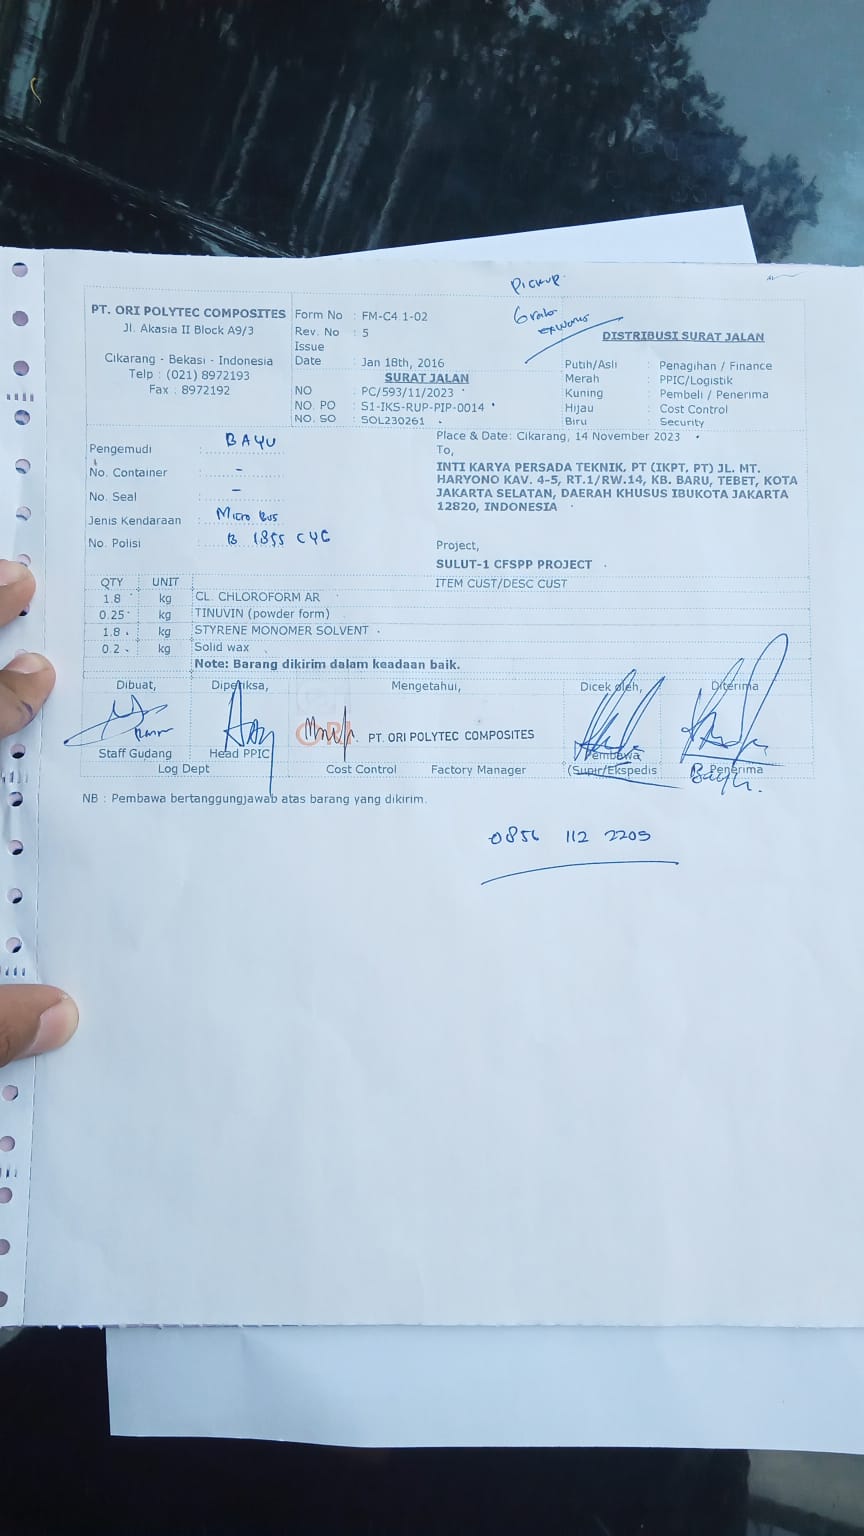 Pickup
PT. ORI POLYTEC COMPOSITES
Jl. Akasia II Block A9/3
Cikarang - Bekasi - Indonesia
Telp : (021) 8972193
Fax : 8972192
Form No : FM-C4.1-02
Rev. No : 5
Issue
Date : Jan 18th, 2016
SURAT JALAN
NO : PC/593/11/2023
NO. PO : S1-IKS-RUP-PIP-0014
NO. SO : SOL230261
DISTRIBUSI SURAT JALAN
Putih/Asli : Penagihan / Finance
Merah : PPIC/Logistik
Kuning : Pembeli / Penerima
Hijau : Cost Control
Biru : Security
Pengemudi : BAYU
No. Container : -
No. Seal : -
Jenis Kendaraan : Micro Bus
No. Polisi : B 1855 CYG
Place & Date: Cikarang, 14 November 2023
To,
INTI KARYA PERSADA TEKNIK, PT (IKPT, PT) JL. MT.
HARYONO KAV. 4-5, RT.1/RW.14, KB. BARU, TEBET, KOTA
JAKARTA SELATAN, DAERAH KHUSUS IBUKOTA JAKARTA
12820, INDONESIA
Project,
SULUT-1 CFSPP PROJECT
QTY UNIT ITEM CUST/DESC CUST
1.8 kg CL. CHLOROFORM AR
0.25 kg TINUVIN (powder form)
1.8 kg STYRENE MONOMER SOLVENT
0.2 kg Solid wax
Note: Barang dikirim dalam keadaan baik.
Dibuat, Diperiksa, Mengetahui, Dicek oleh, Diterima
ORI PT. ORI POLYTEC COMPOSITES
Staff Gudang Head PPIC Pembawa
Log Dept Cost Control Factory Manager (Supir/Ekspedis Penerima
NB : Pembawa bertanggungjawab atas barang yang dikirim.
0856 112 2209